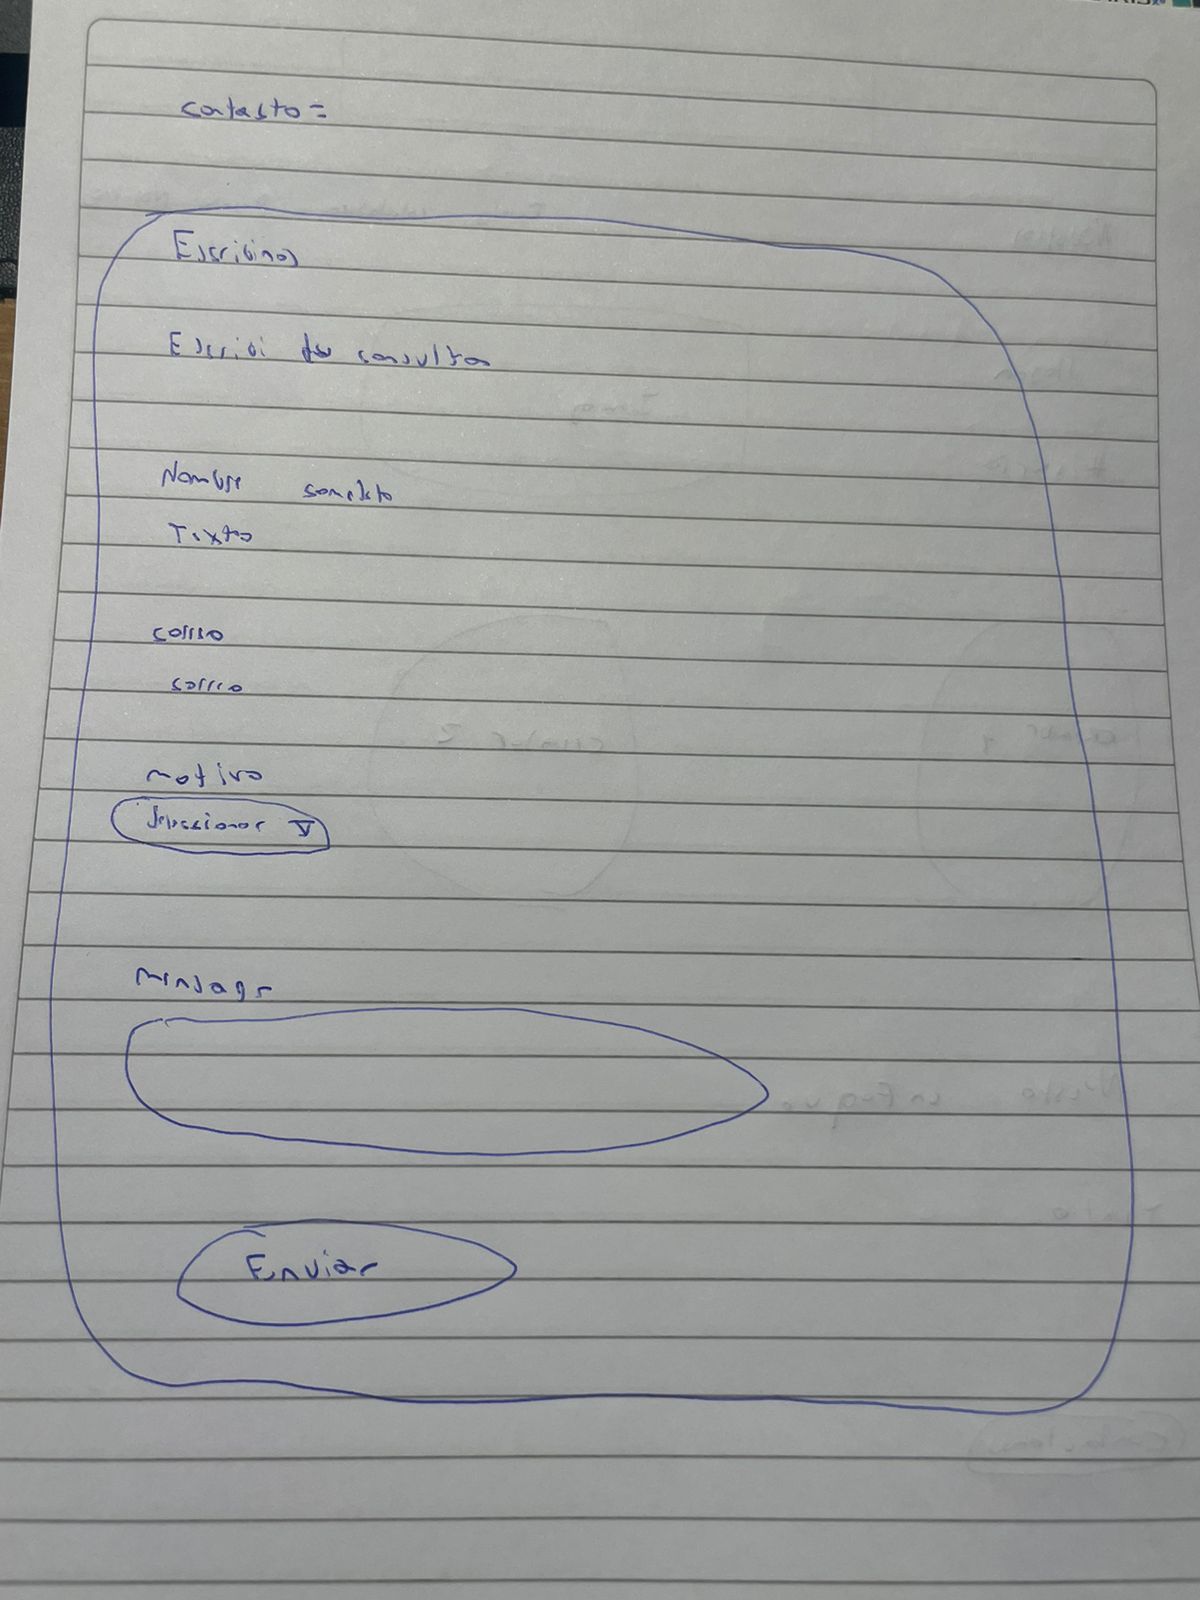 contacto =
Escribinos
Escribi tu consulta
Nombre completo
Texto
correo
correo
motivo
Seleccionar V
mensage
Enviar